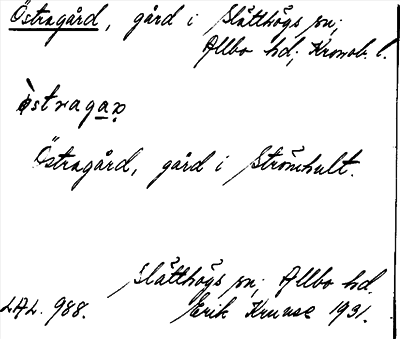 Östragård, gård i Slätthögs sn;
Allbo hd; Kronob. l.
östragaɒ
Östragård, gård i Strömhult.
Slätthögs sn; Allbo hd.
LAL. 988. Erik Kruuse 1931.